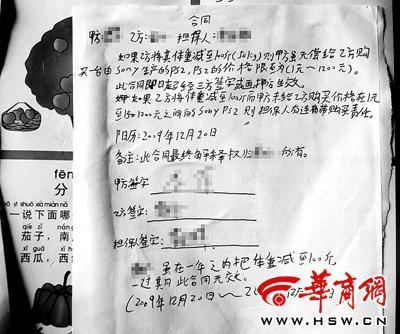 合同
甲方: 乙方: 担保人:
如果乙方将其体重减至100斤(50kg)则甲方须无偿给乙方购
买一台由Sony生产的PS2, PS2的价格限至为(1元～1200元)。
此合同即日起经三方签字或画押后生效。
如果乙方将体重减至100斤而甲方未给乙方购买价格在1元
至1200元之间的Sony PS2 则担保人有连带购买责任。
日期:2009年12月20日
备注:此合同最终解释权归 所有。
甲方签字
乙方签字:
担保人签字:
虽在一年之内把体重减至100斤
一过其内此合同无效
(2009年12月20日～
fēn
分
yì shuō xià miàn nǎ
一说下面哪
qié zǐ nán
茄子,南
xī guā xī
西瓜,西
华商网
WWW.HSW.CN